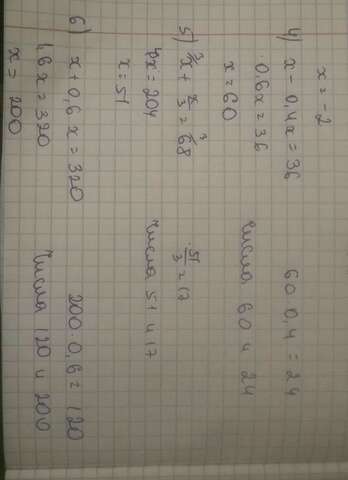 x = -2
4) x - 0,4x = 36
0,6x = 36
x = 60
60 · 0,4 = 24
числа 60 и 24
5) x + x/3 = 68
4x = 204
x = 51
51/3 = 17
числа 51 и 17
6) x + 0,6x = 320
1,6x = 320
x = 200
200 · 0,6 = 120
числа 120 и 200